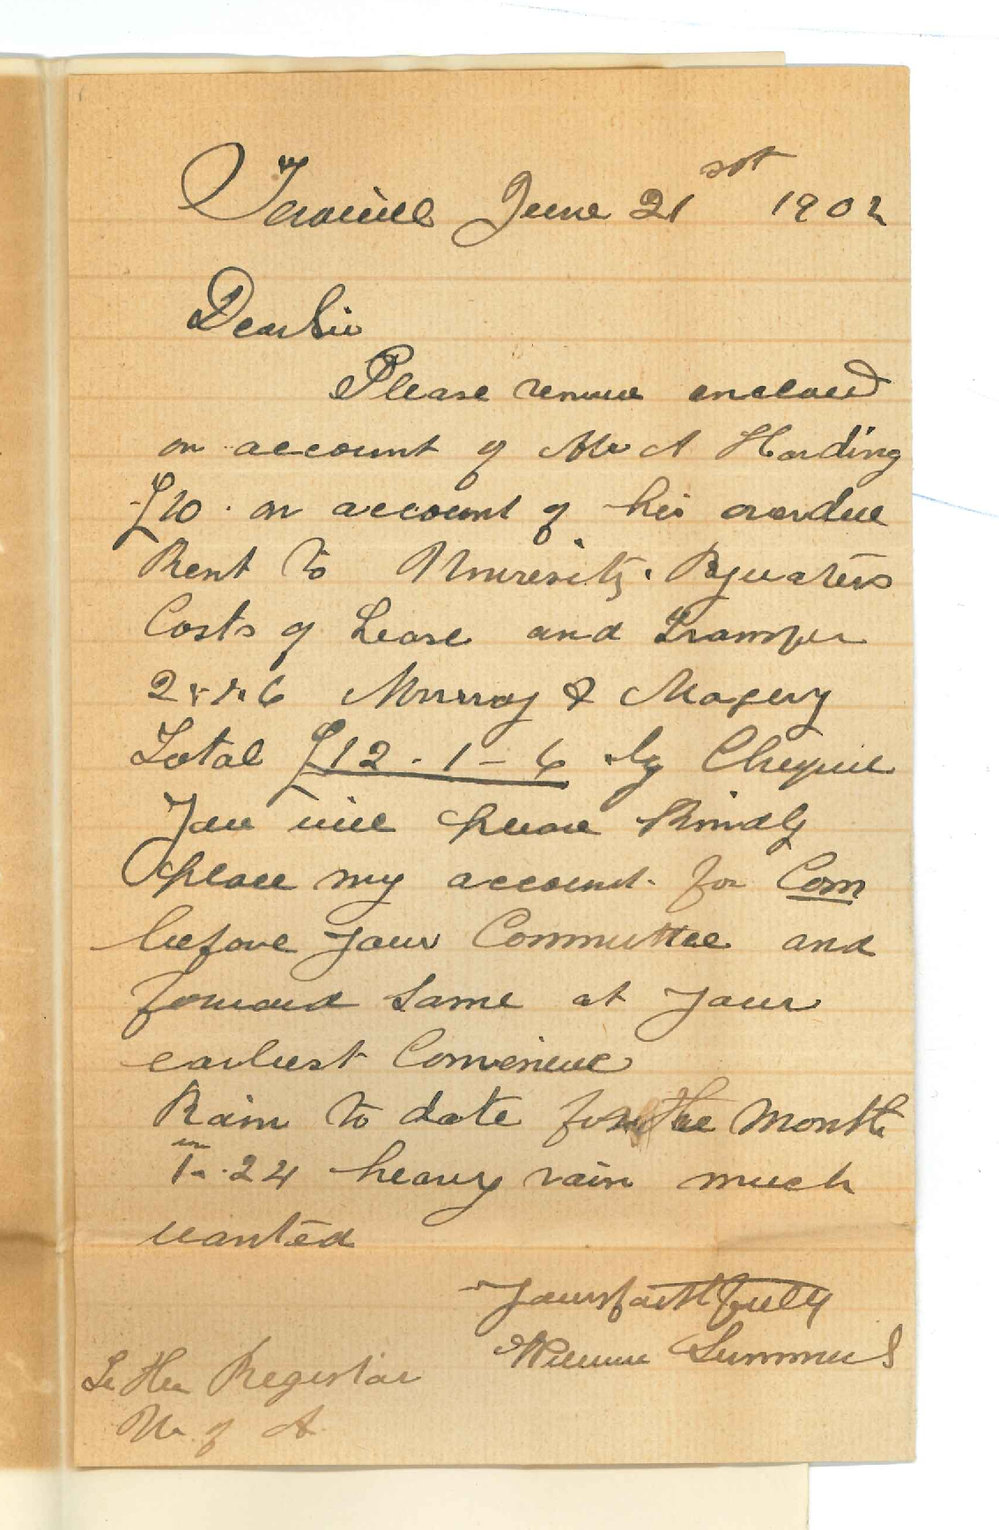 Terowie June 21st 1902
Dear Sir
Please receive enclosed
on account of Mr A Harding
£10. on account of his overdue
Rent to University. Bywaters
Costs of Lease and Transfer
2.1.6 Murray & Magery
Total £12-1-6 by Cheque
You will please kindly
place my account for Com
before your Committee and
forward same at your
earliest Convenience
Rain to date for the Month
1in.24 heavy rain much
wanted
Yours faithfully
Summers
To the Registrar
U. of A.